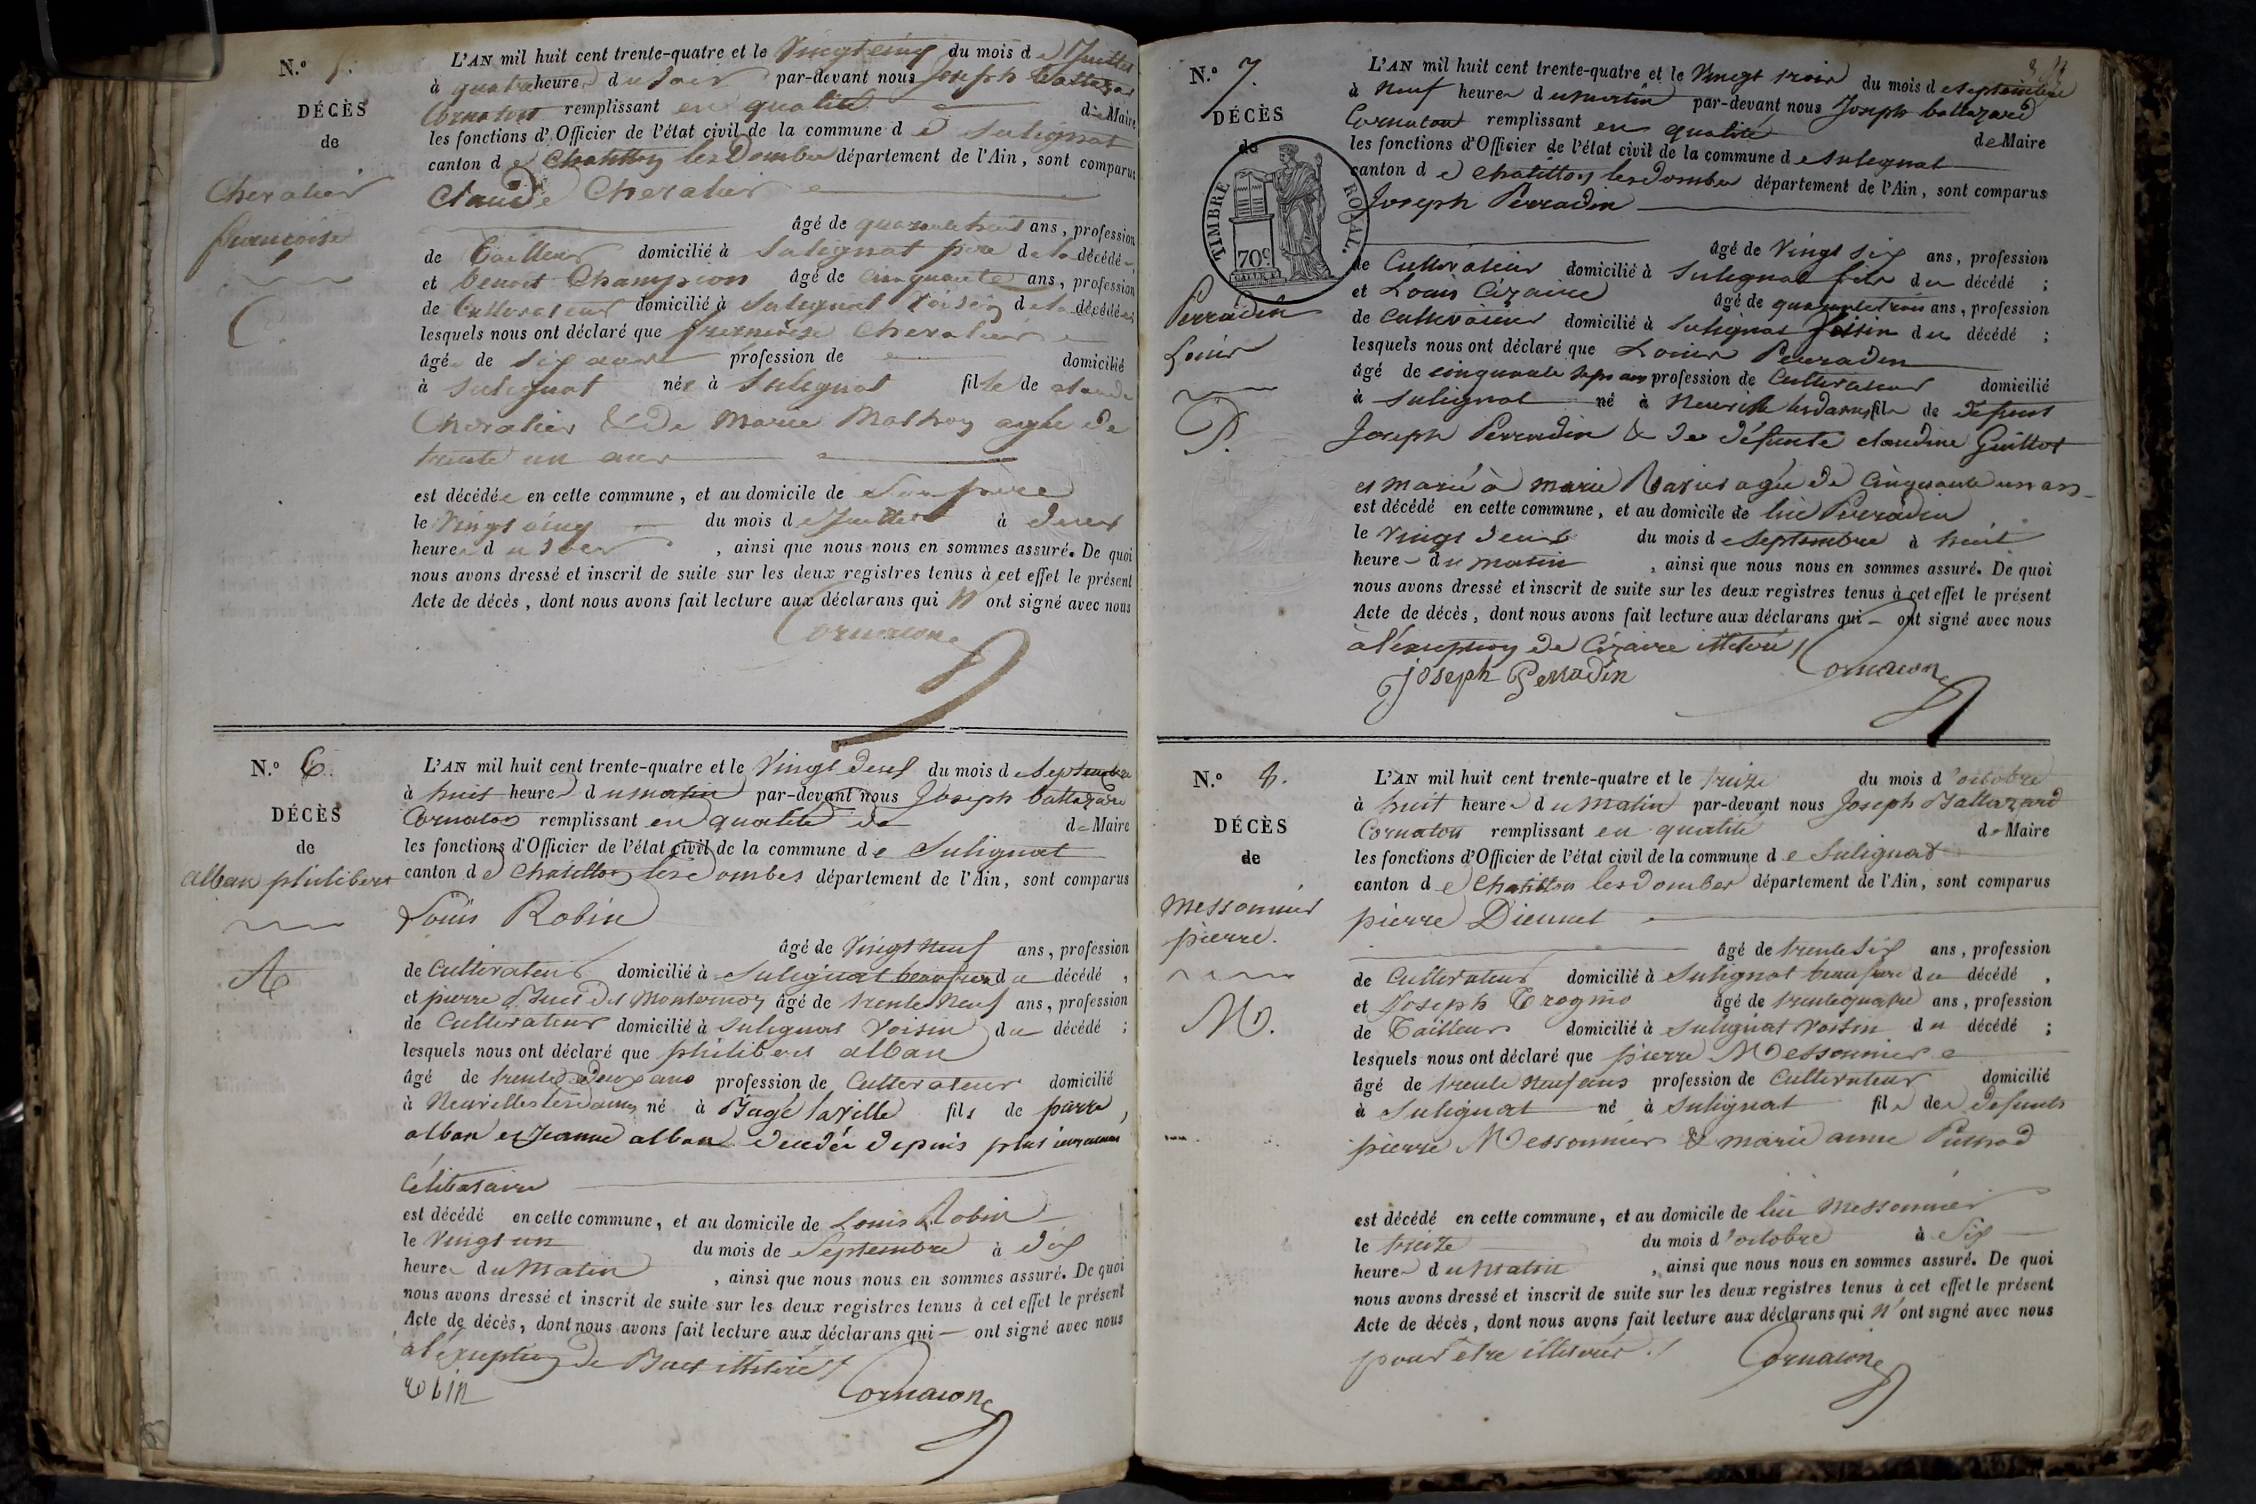 N.º 5.
DÉCÈS
de
Chevalier
françoise
C.
L'AN mil huit cent trente-quatre et le Vingt cinq du mois de Juillet
à quatre heures du soir par-devant nous Joseph Baltazar
Cornaton remplissant en qualité de Maire
les fonctions d'Officier de l'état civil de la commune de Sulignat
canton de Chatillon les Dombes département de l'Ain, sont comparus
Claude Chevalier
âgé de quarante huit ans, profession
de Tailleur domicilié à Sulignat père de la décédée,
et Benoit Champion âgé de cinquante ans, profession
de Cultivateur domicilié à Sulignat Voisin de la décédée
lesquels nous ont déclaré que françoise Chevalier
âgée de six ans profession de domicilié
à Sulignat née à Sulignat fille de claude
Chevalier & de Marie Mathon agée de
trente un ans
est décédée en cette commune, et au domicile de Son père
le Vingt cinq du mois de Juillet à deux
heures du soir, ainsi que nous nous en sommes assuré. De quoi
nous avons dressé et inscrit de suite sur les deux registres tenus à cet effet le présent
Acte de décès, dont nous avons fait lecture aux déclarans qui N'ont signé avec nous
Cornaton
N.º 6.
DÉCÈS
de
alban philibert
A
L'AN mil huit cent trente-quatre et le Vingt deux du mois de Septembre
à huit heures du matin par-devant nous Joseph baltazard
Cornaton remplissant en qualité de de Maire
les fonctions d'Officier de l'état civil de la commune de Sulignat
canton de Chatillon les Dombes département de l'Ain, sont comparus
Louis Robin
âgé de Vingt Neuf ans, profession
de Cultivateur domicilié à Sulignat beaufrere du décédé,
et pierre Buet dit Monternoz âgé de trente Neuf ans, profession
de Cultivateur domicilié à Sulignat Voisin du décédé;
lesquels nous ont déclaré que philibert alban
âgé de trente deux ans profession de Cultivateur domicilié
à Neuville les dames né à Bagé la ville fils de pierre,
alban et Jeanne alban décédée depuis plusieurs années
Célibataire
est décédé en cette commune, et au domicile de Louis Robin
le Vingt un du mois de Septembre à dix
heures du Matin, ainsi que nous nous en sommes assuré. De quoi
nous avons dressé et inscrit de suite sur les deux registres tenus à cet effet le présent
Acte de décès, dont nous avons fait lecture aux déclarans qui — ont signé avec nous
à l'exception de Buet illitéré
robin Cornaton
N.º 7.
DÉCÈS
de
TIMBRE ROYAL.
70c.
Perradin
Louis
P.
L'AN mil huit cent trente-quatre et le Vingt trois du mois de Septembre
à Neuf heures du matin par-devant nous Joseph baltazard
Cornaton remplissant en qualité de Maire
les fonctions d'Officier de l'état civil de la commune de Sulignat
canton de Chatillon les Dombes département de l'Ain, sont comparus
Joseph Perradin
âgé de Vingt six ans, profession
de Cultivateur domicilié à Sulignat fils du décédé;
et Louis Cizaire âgé de quarante trois ans, profession
de Cultivateur domicilié à Sulignat Voisin du décédé;
lesquels nous ont déclaré que Louis Perradin
âgé de cinquante sept ans profession de Cultivateur domicilié
à Sulignat né à Neuville les dames fils de défunt
Joseph Perradin & de défunte claudine Guillot
et marié à marie agée de Cinquante un ans
est décédé en cette commune, et au domicile de lui Perradin
le Vingt deux du mois de Septembre à huit
heures du matin, ainsi que nous nous en sommes assuré. De quoi
nous avons dressé et inscrit de suite sur les deux registres tenus à cet effet le présent
Acte de décès, dont nous avons fait lecture aux déclarans qui — ont signé avec nous
à l'exception de Cizaire illitéré
Joseph Perradin Cornaton
N.º 8.
DÉCÈS
de
Messonnier
pierre.
M.
L'AN mil huit cent trente-quatre et le treize du mois d'octobre
à huit heures du Matin par-devant nous Joseph Baltazard
Cornaton remplissant en qualité de Maire
les fonctions d'Officier de l'état civil de la commune de Sulignat
canton de Chatillon les Dombes département de l'Ain, sont comparus
pierre Diennet
âgé de trente six ans, profession
de Cultivateur domicilié à Sulignat beaufrere du décédé,
et Joseph Trogmo âgé de trente quatre ans, profession
de Tailleur domicilié à Sulignat Voisin du décédé;
lesquels nous ont déclaré que pierre Messonnier
âgé de trente Neuf ans profession de Cultivateur domicilié
à Sulignat né à Sulignat fils des defunts
pierre Messonnier & marie anne
est décédé en cette commune, et au domicile de lui Messonnier
le treize du mois d'octobre à Six
heures du Matin, ainsi que nous nous en sommes assuré. De quoi
nous avons dressé et inscrit de suite sur les deux registres tenus à cet effet le présent
Acte de décès, dont nous avons fait lecture aux déclarans qui N'ont signé avec nous
pour être illitérés.
Cornaton